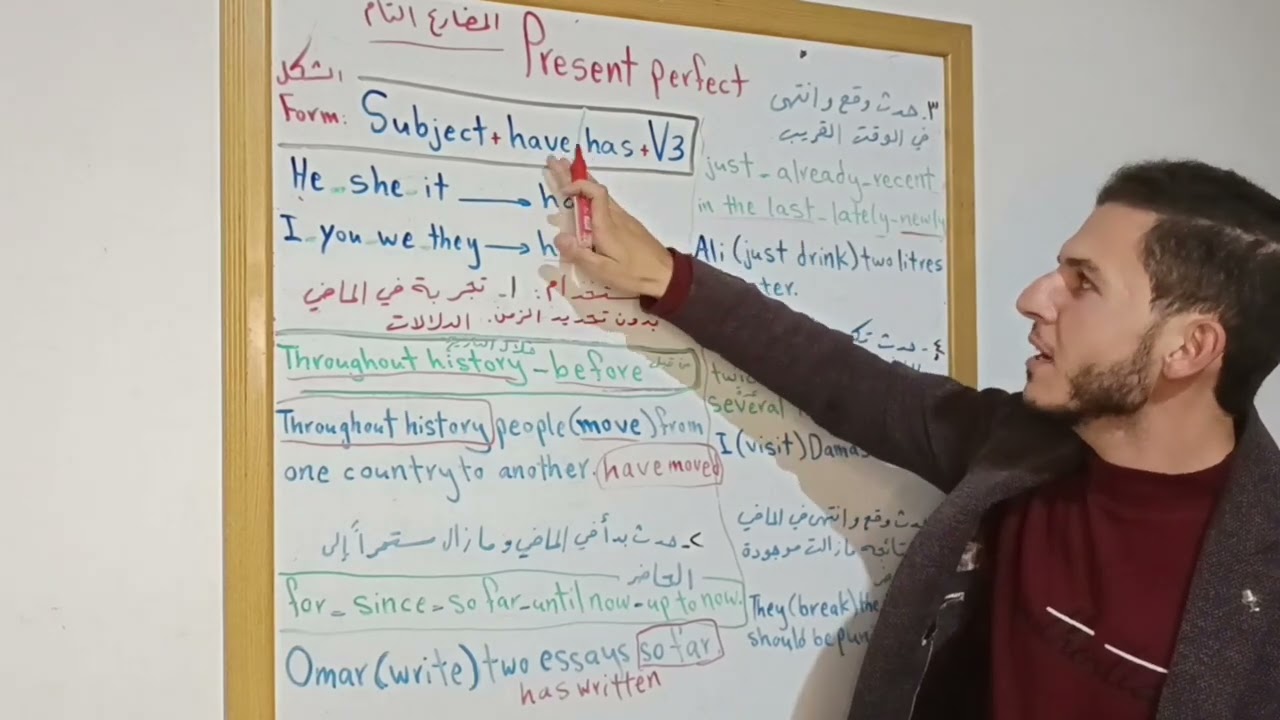 المضارع التام
Present perfect
الشكل
Form: Subject + have/has + V3
He she it → ha
I you we they → h
١- تجربة في الماضي
بدون تحديد الزمن. الدلالات
خلال التاريخ
من قبل
Throughout history - before
Throughout history people (move) from
one country to another. have moved
٢- حدث بدأ في الماضي وما زال مستمراً إلى
الحاضر
for - since - so far - until now - up to now.
Omar (write) two essays so far.
has written
٣. حدث وقع وانتهى
في الوقت القريب
just - already - recent
in the last - lately - newly
Ali (just drink) two litres
٤- حدث
several
I (visit) Damas
حدث وقع وانتهى في الماضي
مازالت موجودة
They (break) the
should be pun